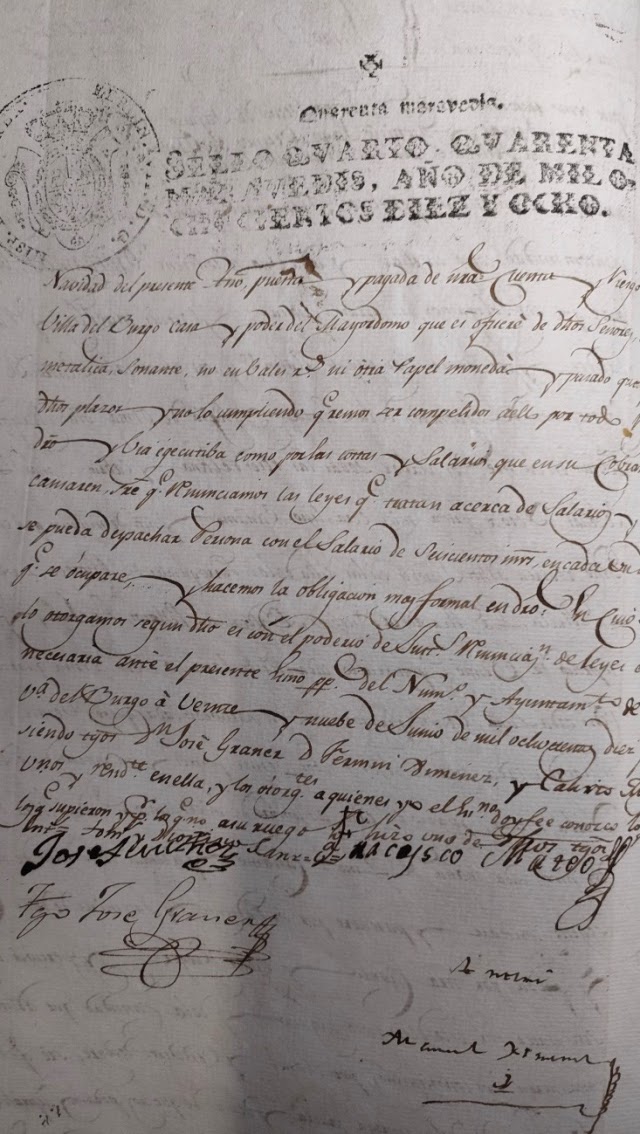 Quarenta maravedis.
SELLO QVARTO. QVARENTA
MARAVEDIS, AÑO DE MIL O
CHOCIENTOS DIEZ Y OCHO.
Navidad del presente Año, puesta y pagada de nra Cuenta y Riesgo
Villa del Burgo casa y poder del Mayordomo que es ó fuere de dhos Señores,
metalica, sonante, no en Vales rs ni otra Papel moneda y pasado que
dhos plazos y no lo cumpliendo qremos ser compelidos à ello por todo
dro y Via egecutiba como por las costas y Salarios que en su Cobran
causaren, sre qe Rnunciamos las leyes qe tratan acerca de Salarios y
se pueda despachar Persona con el Salario de Seiscientos mrs, en cada un
qe se ócupare, y hacemos la obligacion mas formal en dro: En Cuio
lo otòrgamos segun dho es con el poderio de Just.s Rnunciaz.n de leyes
necesaria ante el presente Esño pp.co del Num.o y Ayuntam.to de
V.a del Burgo à Veinte y nuebe de Junio de mil ochocientos diez
siendo tgos D.n José Graner D. Fermin Ximenez, y
Vnos y resid.tes en ella, y los otorg.tes a quienes yo el Es.no doy fee conozco lo
que supieron y p.r la q.e no a su ruego lo firó uno de dhos tgos
Mateo
Tgo José Graner
Ante mi
Manuel Ximenez